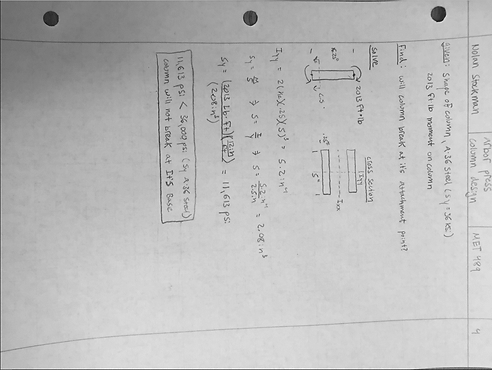 Nolan Stockman
Arbor press
column design
MET 489
4
Given: shape of column, A36 steel (Sy = 36 ksi)
2013 ft·lb moment on column
Find: will column break at its attachment point?
Solve
2013 ft·lb
cross section
.25"
5"
Iyy
Ixx
Iyy = 2(1/12)(.25)(5)³ = 5.2 in⁴
5.2 in⁴
2.5 in
= 2.08 in³
= 11,613 psi
(2.08 in³)
11,613 psi < 36,000 psi (Sy A36 steel)
column will not break at it's base